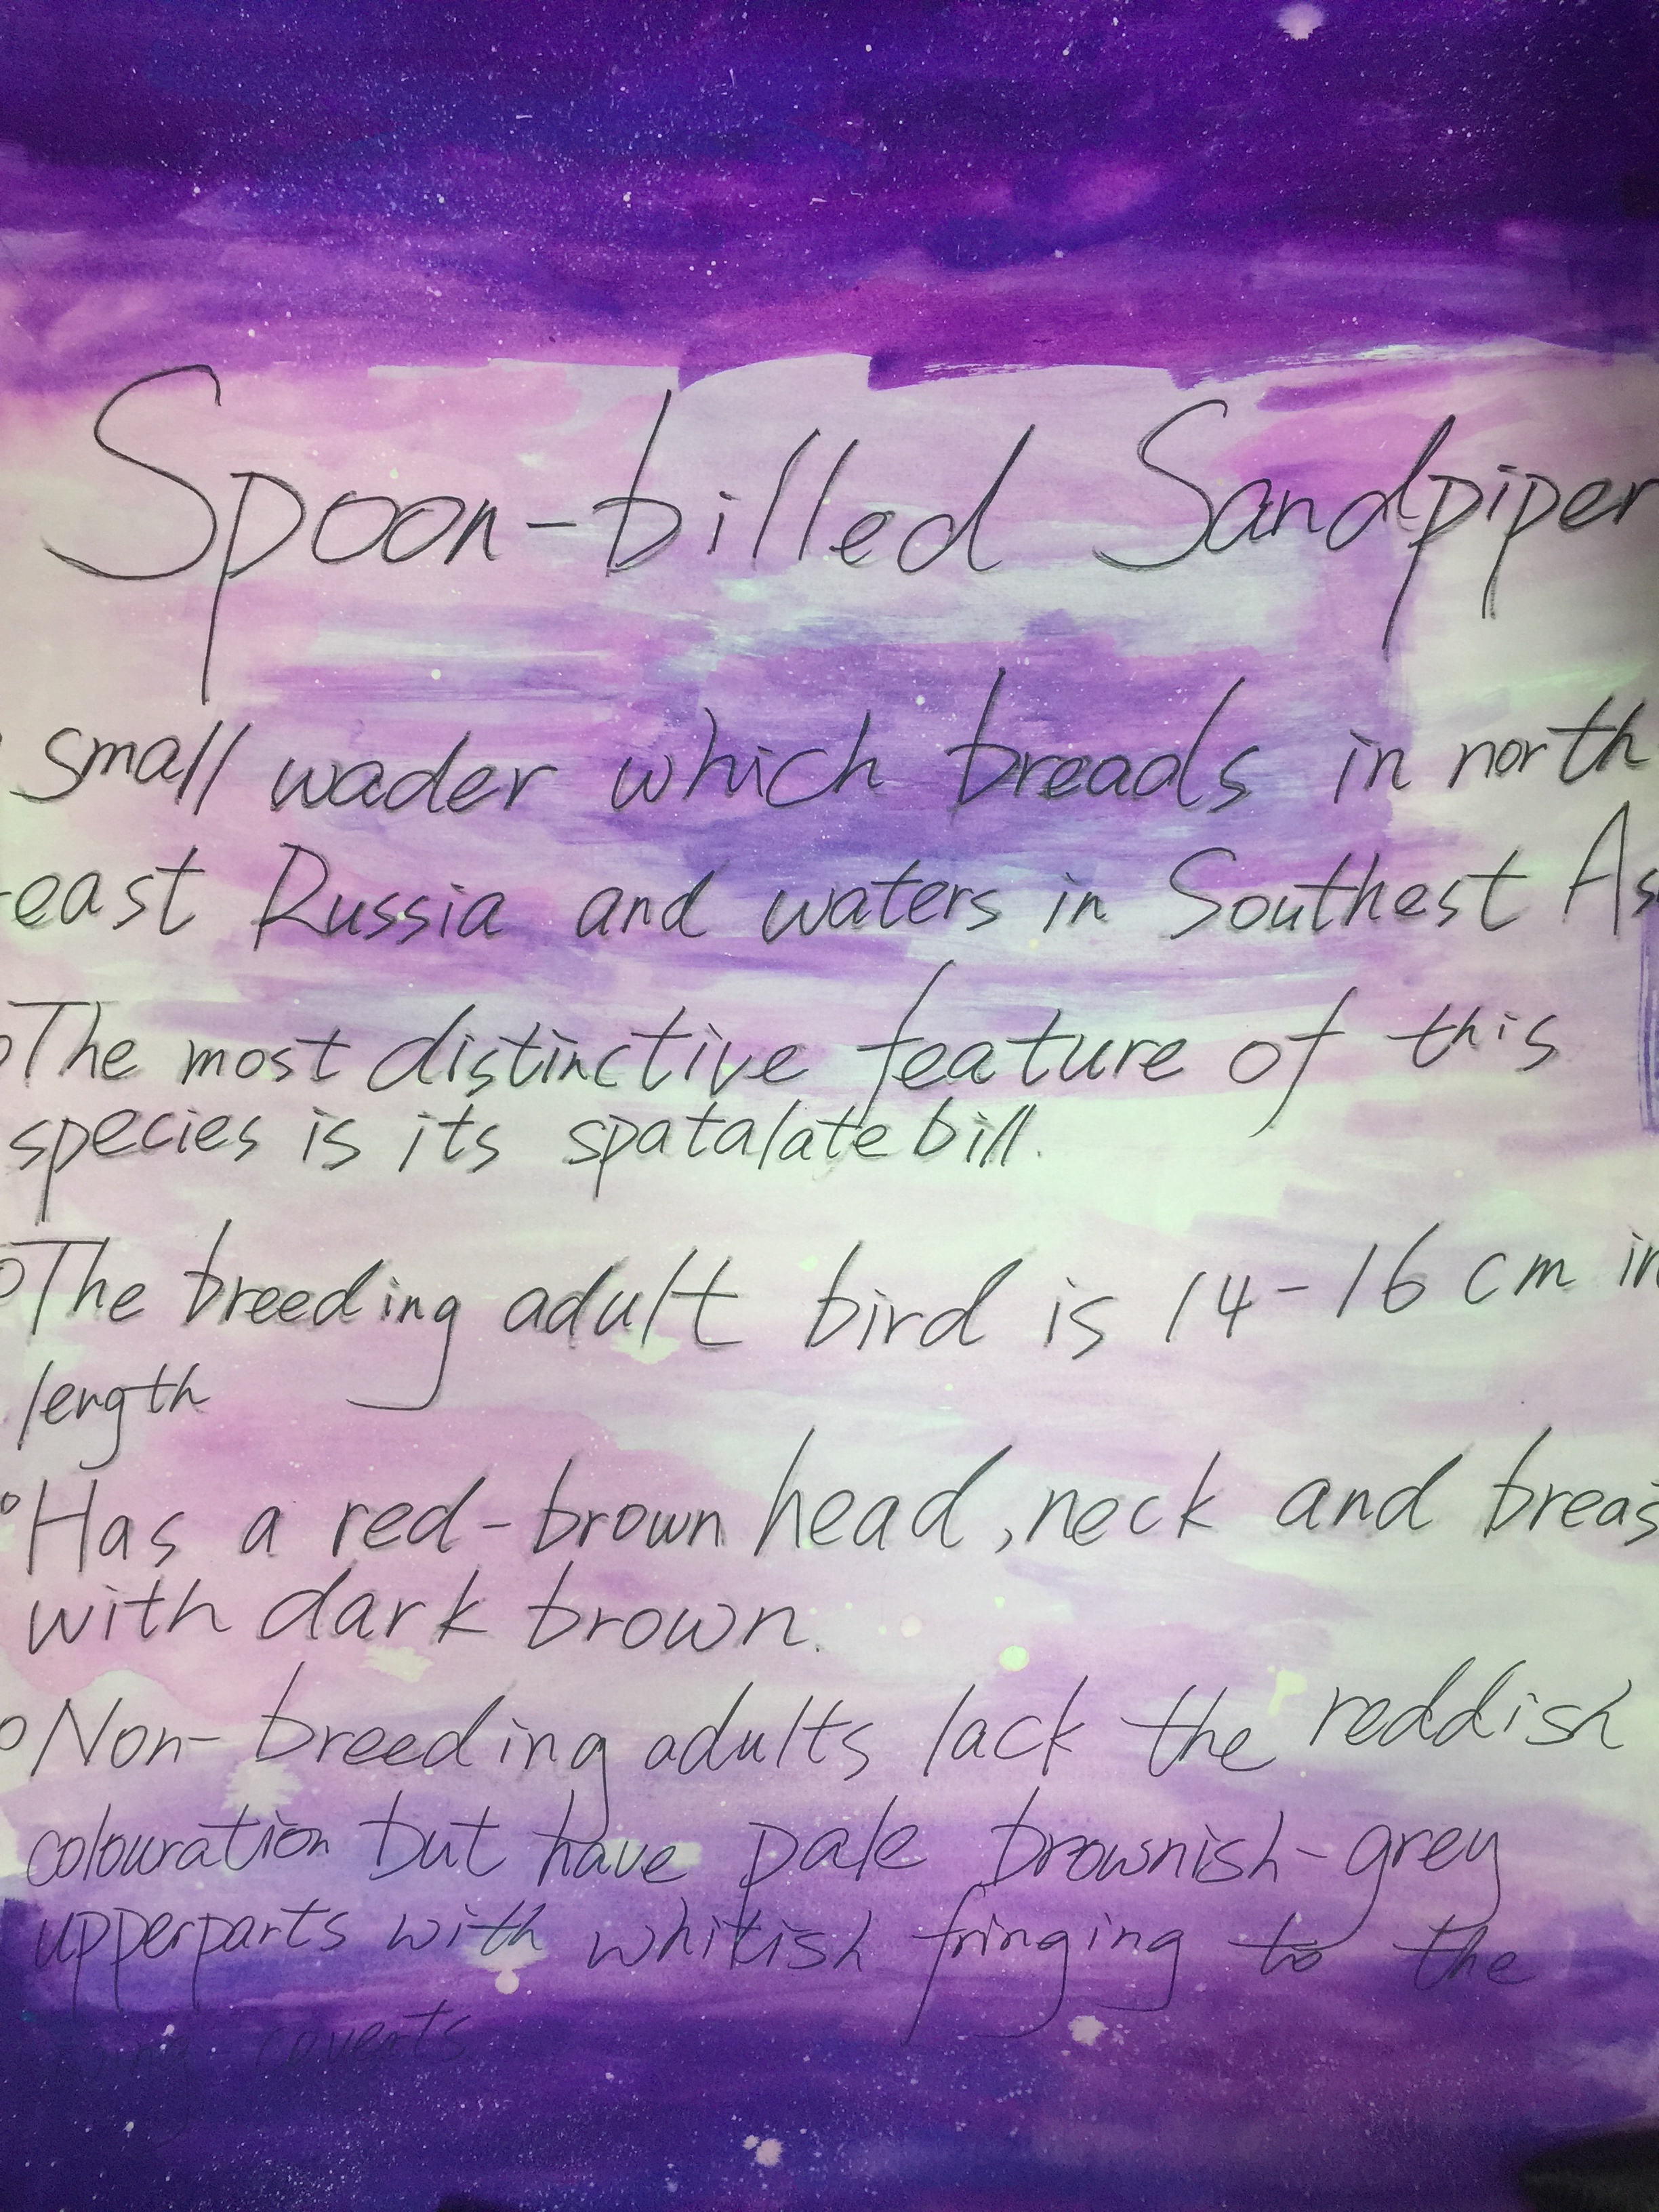 Spoon-billed Sandpiper
small wader which breads in north
-east Russia and waters in Southest As
The most distinctive feature of this
species is its spatalate bill.
The breeding adult bird is 14-16 cm in
length
Has a red-brown head, neck and breas
with dark brown.
Non-breeding adults lack the reddish
colouration but have pale brownish-grey
upperparts with whitish fringing to the
coverts